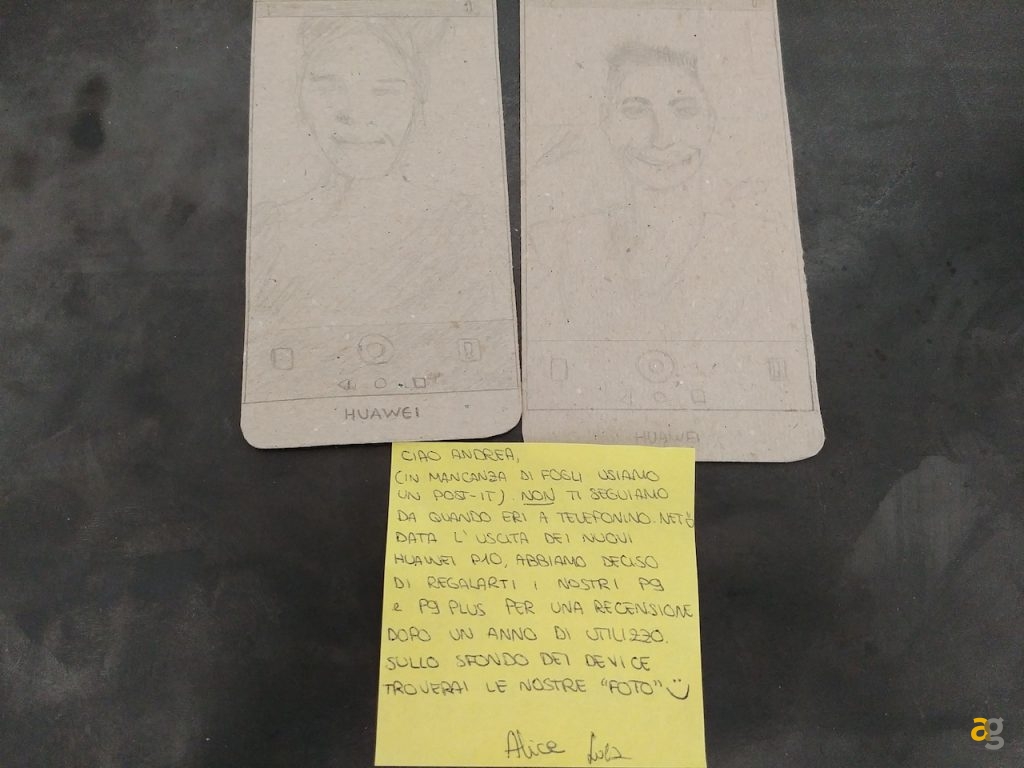 HUAWEI
HUAWEI
CIAO ANDREA,
(IN MANCANZA DI FOGLI USIAMO
UN POST-IT). NON TI SEGUIAMO
DA QUANDO ERI A TELEFONINO.NET
DATA L'USCITA DEI NUOVI
HUAWEI P10, ABBIAMO DECISO
DI REGALARTI I NOSTRI P9
e P9 PLUS PER UNA RECENSIONE
DOPO UN ANNO DI UTILIZZO.
SULLO SFONDO DEI DEVICE
TROVERAI LE NOSTRE "FOTO"
Alice
ag